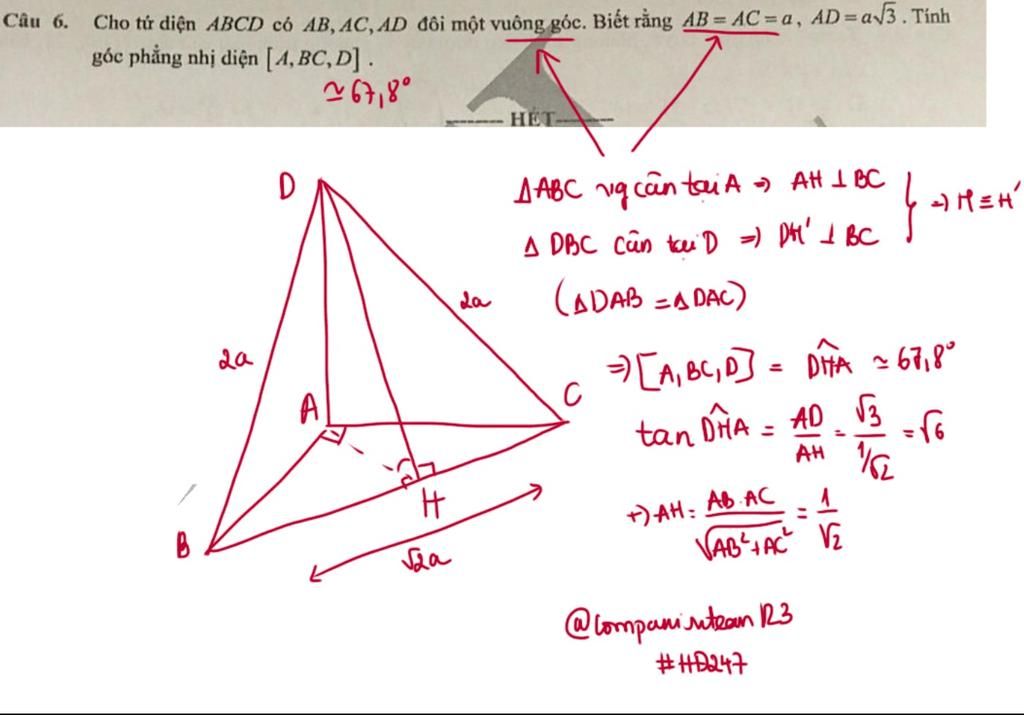 Câu 6. Cho tứ diện ABCD có AB, AC, AD đôi một vuông góc. Biết rằng AB = AC = a, AD = a√3. Tính
góc phẳng nhị diện [A, BC, D].
≃ 67,8°
------- HẾT-------
D
ΔABC vg cân tại A => AH ⊥ BC
=> H ≡ H'
Δ DBC cân tại D => DH' ⊥ BC
(ΔDAB = ΔDAC)
2a
2a
=> [A, BC, D] = DĤA ≃ 67,8°
C
A
tan DĤA = AD/AH = √3/(1/√2) = √6
H
B
+) AH = AB.AC/√(AB²+AC²) = 1/√2
√2a
#HD247